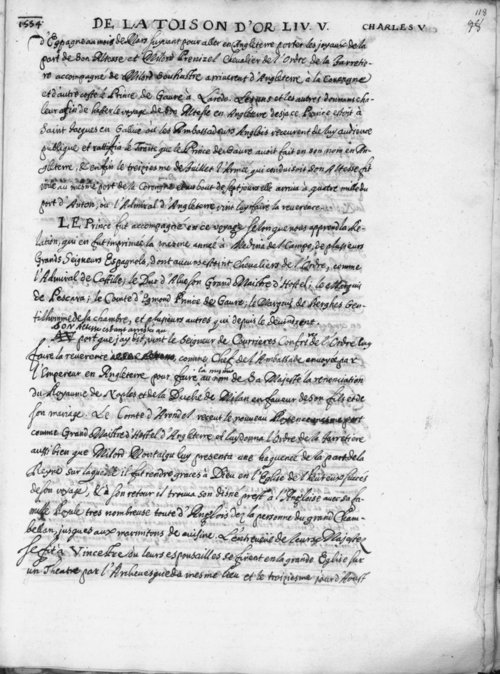 118
1554 DE LA TOISON D'OR LIV. V. CHARLES V 98
d'Espagne au mois de Mars suivant pour aller en Angleterre porter les joyaux de la
part de Son Altesse et Milord Chevalier de l'Ordre de la Garretie
re accompagné de Milord arriverent d'Angleterre, à la Corogne
et d'autre costé le Prince de Gavre à Laredo. et les autres
le voyage de Son Altesse en Angleterre ce Prince estoit à
Saint Jacques en Galice ou les Ambassadeurs Anglois receurent de luy audience
publique et ratifia le Traité que le Prince de Gavre avoit fait en son nom en An-
gleterre, et enfin le treiziesme de Juillet l'Armée qui conduisoit Son Altesse fit
voile au mesme port de la Corogne et au bout de sept jours elle arriva à quatre mille du
port d'Anton, ou l'Admiral d'Angleterre vint luy faire la reverence.
LE Prince fut accompagné en ce voyage selon que nous apprend la Re-
lation, qui en fut imprimée la mesme année à Medina del Campo, de plusieurs
Grands Seigneurs Espagnols, dont aucuns estoint Chevaliers de l'Ordre, comme
l'Admiral de Castille; le Duc d'Alve son Grand Maistre d'Hostel; le Marquis
de Pescara; le Comte d'Egmond Prince de Gavre; le Marquis de Berghes Gen-
tilhomme de sa chambre, et plusieurs autres qui depuis le devindrent.
Son Altesse estant arrivée au
port que j'ay dit, vint le Seigneur de Courrieres Confrere de l'Ordre luy
faire la reverence, comme Chef de l'Ambassade envoyée par
l'Empereur en Angleterre pour faire au nom de Sa Majesté la renonciation
du Royaume de Naples et de la Duché de Milan en faveur de son fils et de
son mariage. Le Comte d'Arondel receut le nouveau Roy en ce port
comme Grand Maistre d'Hostel d'Angleterre et luy donna l'Ordre de la Garretiere
aussi bien que Milord Montaigu luy presenta une haquenée de la part de la
Reyne sur laquelle il fut rendre graces à Dieu en l'Eglise de l'heureux succés
de son voyage, et à son retour il trouva son disné prest à l'Angloise avec sa fa-
mille Royale tres nombreuse toute d'Anglois dez la personne du grand Cham-
bellan, jusques aux marmitons de cuisine. L'entreveüe de leurs Majestez
se fit à Vincestre ou leurs espousailles se firent en la grande Eglise sur
un Theatre par l'Archevesque du mesme lieu et le treiziesme jour d'Aoust